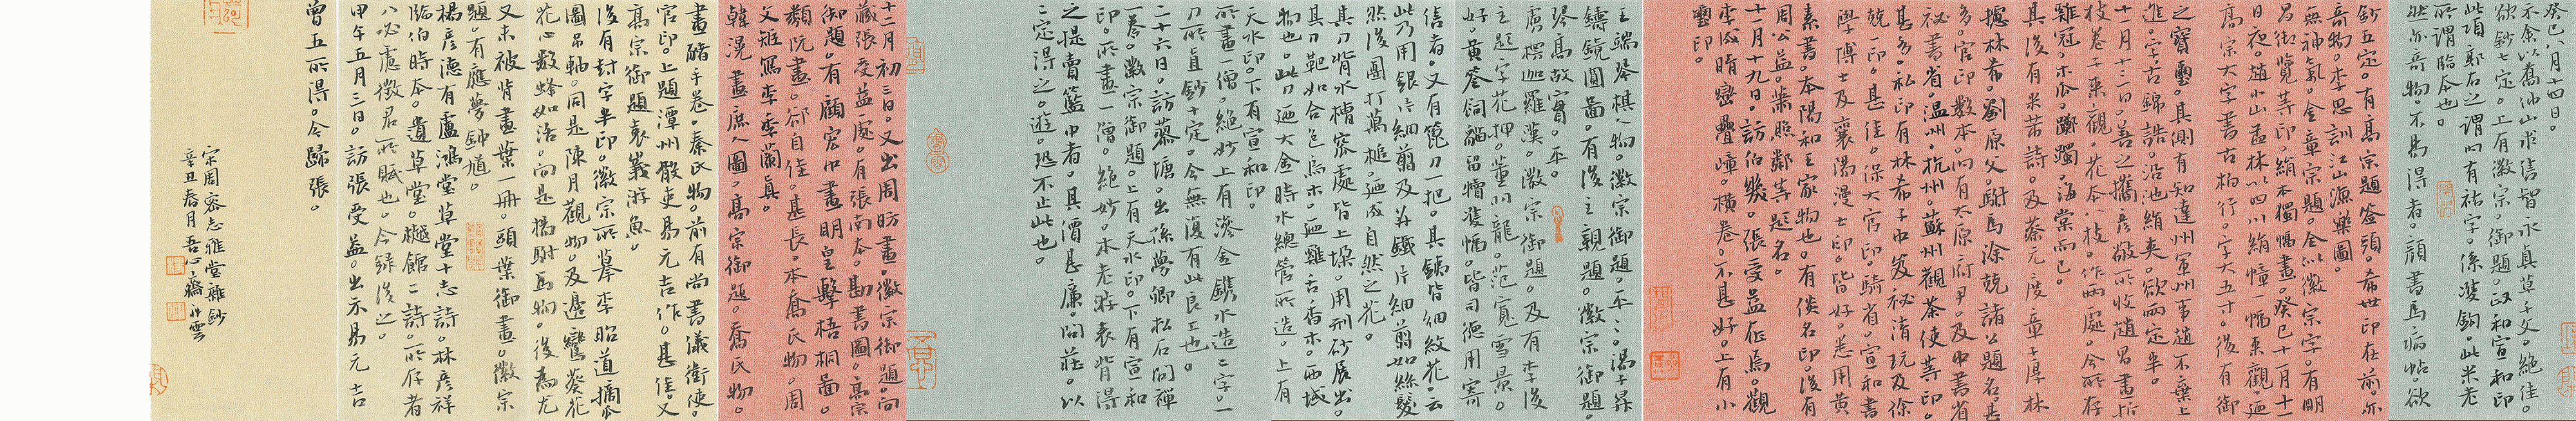 癸巳八月十四日。
不余以舊油求售智永真草千文。絕佳。
欲鈔七定。上有徽宗。御題。政和宣和印
此項郭右之謂內有祐字。係雙鉤。此米老
所謂臨本也。
然亦奇物。不易得者。顏書馬病帖。欲
鈔五定。有高宗題簽頭。希世印在前。亦
奇物。李思訓江山漁樂圖。
無神氣。金章宗題。全似徽宗字。有明
昌御覽等印。絹本獨幅畫。癸巳十月十一
日夜。趙小山孟林以四川絹幢一幅來觀。迺
高宗大字書古柏行。字大五寸。後有御
之寶璽。其側有知達州軍州事趙不棄上
進。字古錦誥。沿池絹夾。欲兩定半。
十一月十三日。善之攜彥敬所收趙昌畫折
枝卷子來觀。花本一枝。作兩處。今所存
雞冠。木瓜。躑躅。海棠而已。
其後有米芾詩。及蔡元度章子厚林
攄林希。劉原父。駙馬涂兢諸公題名。甚
多。官印數本。內有太原府尹。及中書省
祕書省。溫州。杭州。蘇州觀茶使等印。
甚多。私印有林希子中笈祕清玩及徐
兢一印。甚佳。保大官印。騎省。宣和書
學博士及襄陽漫士印。皆好。悉用黃
素書。本陽和王家物也。有倓名印。後有
周公益。常照鄰等題名。
十一月十九日。訪伯幾。張受益在焉。觀
李成晴巒疊嶂。橫卷。不甚好。上有小
璽印。
王端琴棋人物。徽宗御題。平平。渴子舁
鑄鏡圓圖。有後主親題。徽宗御題
琴高故實。平。
虜楞迦羅漢。徽宗御題。及有李後
主題字花押。董川龍。范寬雪景。
好。黃筌飼貓留犢雙幅。皆司德用寄
售者。又有篦刀一把。其鐵皆細紋花。云
此乃用銀片細剪。及并鐵片細剪如絲髮
然後團打萬槌。迺成自然之花。
其刀背水槽窊處。皆上堁。用荊砂展出。
其刀靶如合色烏木。迺雞舌香木。西域
物也。此刀迺大金時水總管所造。上有
天水印。下有宣和印。
所畫一僧。絕妙上有滲金鐫水造二字。一
刀所直鈔十定。今無復有此良工也。
二十六日。訪蓼塘。出孫夢卿松石問禪
一卷。徽宗御題。上有天水印。下有宣和
印。所畫一僧。絕妙。水老時表背得
之。提賣籃中者。其價甚廉。問莊。以
二定得之。遊。恐不止此也。
十二月初三日。又出周昉畫。徽宗御題。向
藏張受益處。有張南本。勘書圖。高宗
御題。有顧宏中畫明皇擊梧桐圖。
類阮畫。卻自佳。甚長。本喬氏物。周
文矩寫李季蘭真。
韓滉畫庶人圖。高宗御題。喬氏物。
畫醋手卷。秦氏物。前有尚書議衛使
官印。上題潭州骰吏易元吉作。甚佳。又
高宗御題袁羲游魚。
後有封字半印。徽宗所摹李昭道摘瓜
圖。吊軸。同是陳月觀物。及邊鸞葵花
花心數蜂如活。向是楊駙馬物。後為尤
又未被背畫葉一冊。頭葉御畫。徽宗
題。有應夢鍾馗。
楊彥德有盧鴻堂草堂十志詩。林彥祥
臨伯時本。遺草堂。樾館二詩。所存者
八。必盧徵君所賦也。今錄後之。
甲午五月三日。訪張受益。出示易元吉
曾五所得。今歸張。
宗周密志雅堂雜鈔
辛丑春月吾心齋小雲